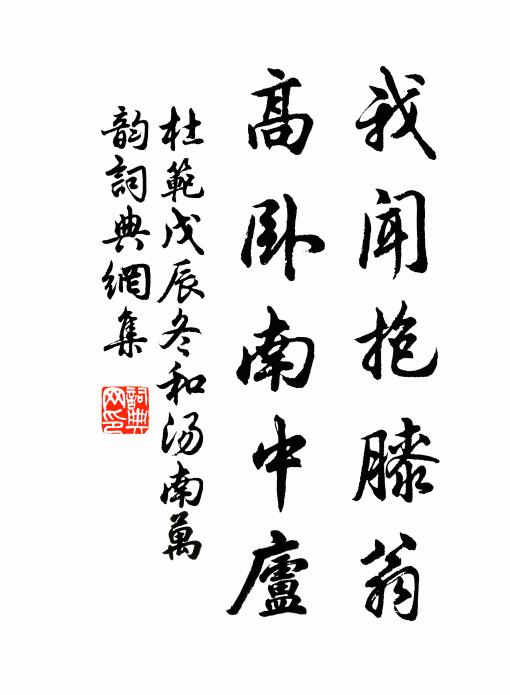 我聞抱膝翁
高卧南中廬
杜範戊辰冬和湯南萬
韵詞典網集
詞典
网印